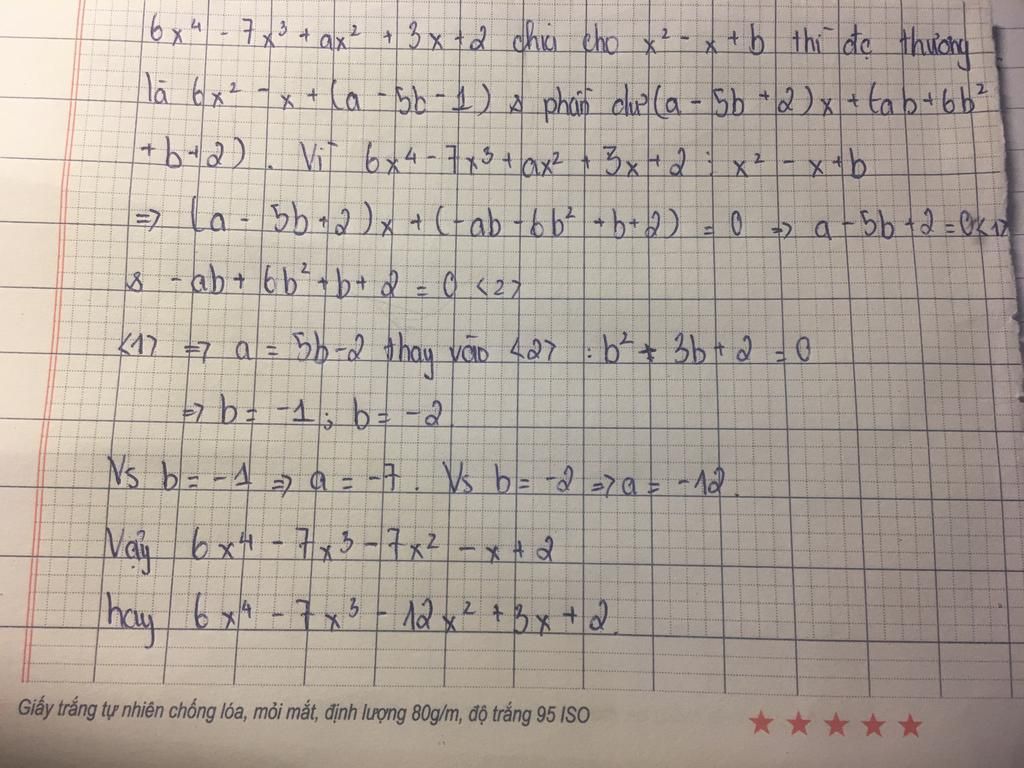 6x⁴ - 7x³ + ax² + 3x + 2 chia cho x² - x + b thì đc thương
là 6x² - x + (a - 5b - 1) & phần dư (a - 5b + 2)x + (ab + 6b²
+ b + 2). Vì 6x⁴ - 7x³ + ax² + 3x + 2 ⋮ x² - x + b
=> (a - 5b + 2)x + (-ab - 6b² + b + 2) = 0 => a - 5b + 2 = 0 <1>
& -ab + 6b² + b + 2 = 0 <2>
<1> => a = 5b - 2 thay vào <2> : b² + 3b + 2 = 0
=> b = -1 ; b = -2
Vs b = -1 => a = -7. Vs b = -2 => a = -12.
Vậy 6x⁴ - 7x³ - 7x² - x + 2
hay 6x⁴ - 7x³ - 12x² + 3x + 2.
Giấy trắng tự nhiên chống lóa, mỏi mắt, định lượng 80g/m, độ trắng 95 ISO